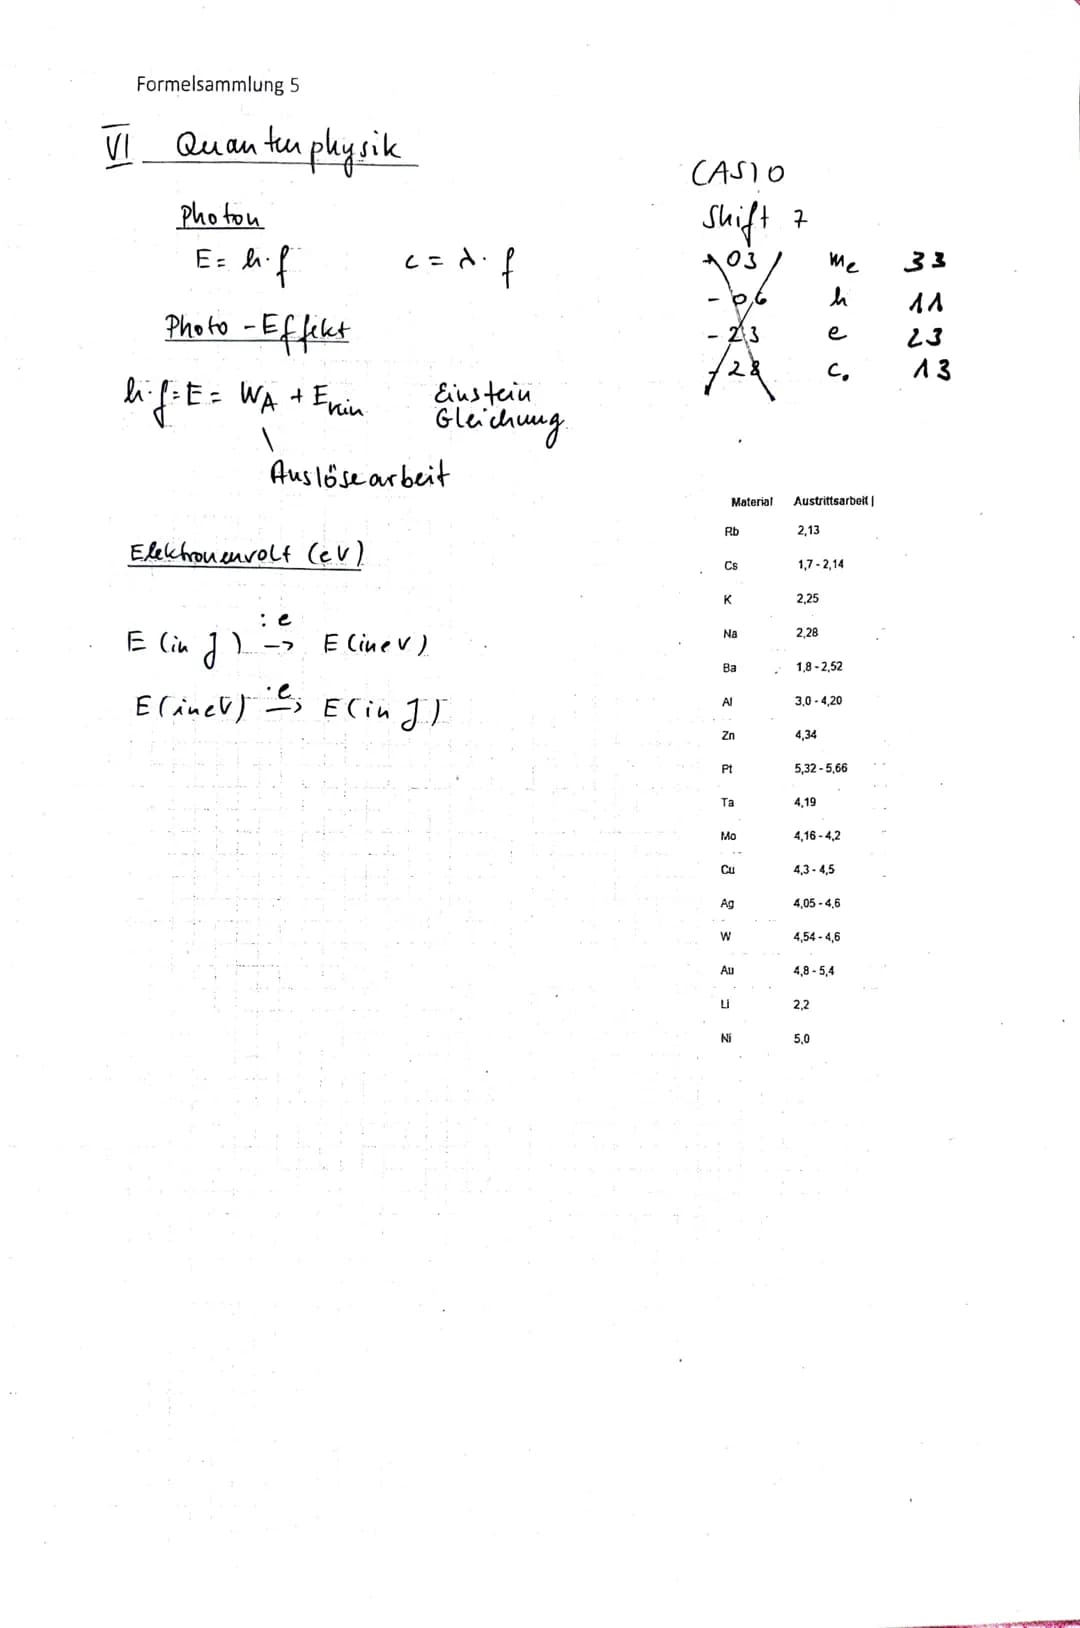 Formelsammlung 5
VI Quantenphysik
Photon
E = h·f c = λ·f
Photo-Effekt
h·f=E = WA + Ekin Einstein Gleichung
Auslösearbeit
Elektronenvolt (eV)
: e
E (in J) -> E (in eV)
· e
E (in eV) -> E (in J)
CASIO
Shift 7
03 me 33
- 06 h 11
- 23 e 23
28 c0 13
Material Austrittsarbeit |
Rb 2,13
Cs 1,7 - 2,14
K 2,25
Na 2,28
Ba 1,8 - 2,52
Al 3,0 - 4,20
Zn 4,34
Pt 5,32 - 5,66
Ta 4,19
Mo 4,16 - 4,2
Cu 4,3 - 4,5
Ag 4,05 - 4,6
W 4,54 - 4,6
Au 4,8 - 5,4
Li 2,2
Ni 5,0